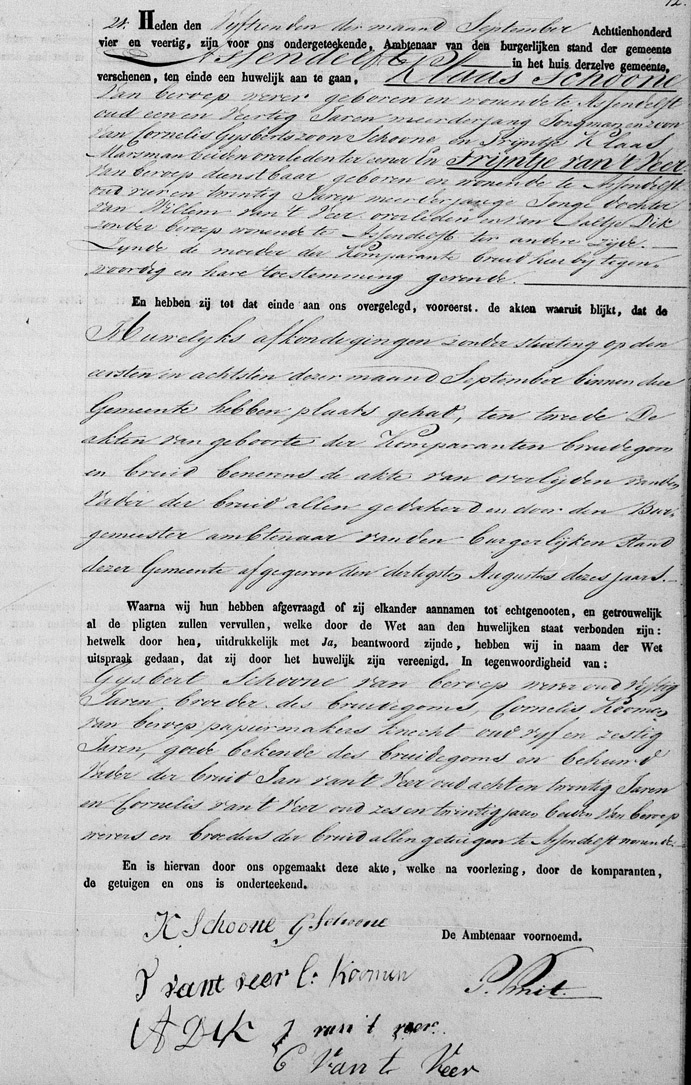 12.
24. Heden den Vyftienden der maand September Achttienhonderd
vier en veertig, zijn voor ons ondergeteekende, Ambtenaar van den burgerlijken stand der gemeente
Assendelft in het huis derzelve gemeente,
verschenen, ten einde een huwelijk aan te gaan, Klaas Schoone
van beroep wever geboren en wonende te Assendelft
oud een en Veertig Jaren meerderjarig Jongman en zoon
van Cornelis Gysbertszoon Schoone en Tryntje Klaas
Marsman beiden overleden ter eener En Tryntje van 't Veer
van beroep dienstbaar geboren en wonende te Assendelft
oud vier en twintig Jaren meerderjarige Jonge dochter
van Willem van 't Veer overleden en van Aaltje Dik
zonder beroep wonende te Assendelft ter andere zijde
Zynde de moeder der Komparante bruid hier bij tegen-
woordig en hare toestemming gevende.
En hebben zij tot dat einde aan ons overgelegd, vooreerst. de akten waaruit blijkt, dat de
Huwelyks afkondigingen zonder stuiting op den
eersten en achtsten dezer maand September binnen deze
Gemeente hebben plaats gehad, ten tweede De
akten van geboorte der Komparanten bruidegom
en bruid benevens de akte van overlyden van den
Vader der bruid allen gedateerd en door den Bur-
gemeester ambtenaar van den burgerlijken Stand
dezer Gemeente afgegeven den dertigsten Augustus dezes jaars.
Waarna wij hun hebben afgevraagd of zij elkander aannamen tot echtgenooten, en getrouwelijk
al de pligten zullen vervullen, welke door de Wet aan den huwelijken staat verbonden zijn:
hetwelk door hen, uitdrukkelijk met Ja, beantwoord zijnde, hebben wij in naam der Wet
uitspraak gedaan, dat zij door het huwelijk zijn vereenigd. In tegenwoordigheid van:
Gysbert Schoone van beroep wever oud vyftig
Jaren, broeder des bruidegoms, Cornelis Koomen
van beroep papiermakers knecht oud vyf en zestig
Jaren, goede bekende des bruidegoms en behuwd
Vader der bruid Jan van 't Veer oud acht en twintig Jaren
en Cornelis van 't Veer oud zes en twintig jaren beiden van beroep
wevers en broeders der bruid allen getuigen te Assendelft wonende
En is hiervan door ons opgemaakt deze akte, welke na voorlezing, door de komparanten,
de getuigen en ons is onderteekend.
K Schoone G Schoone
De Ambtenaar voornoemd.
T vant veer C. Koomen
A Dik J van 't veer
C Van t Veer